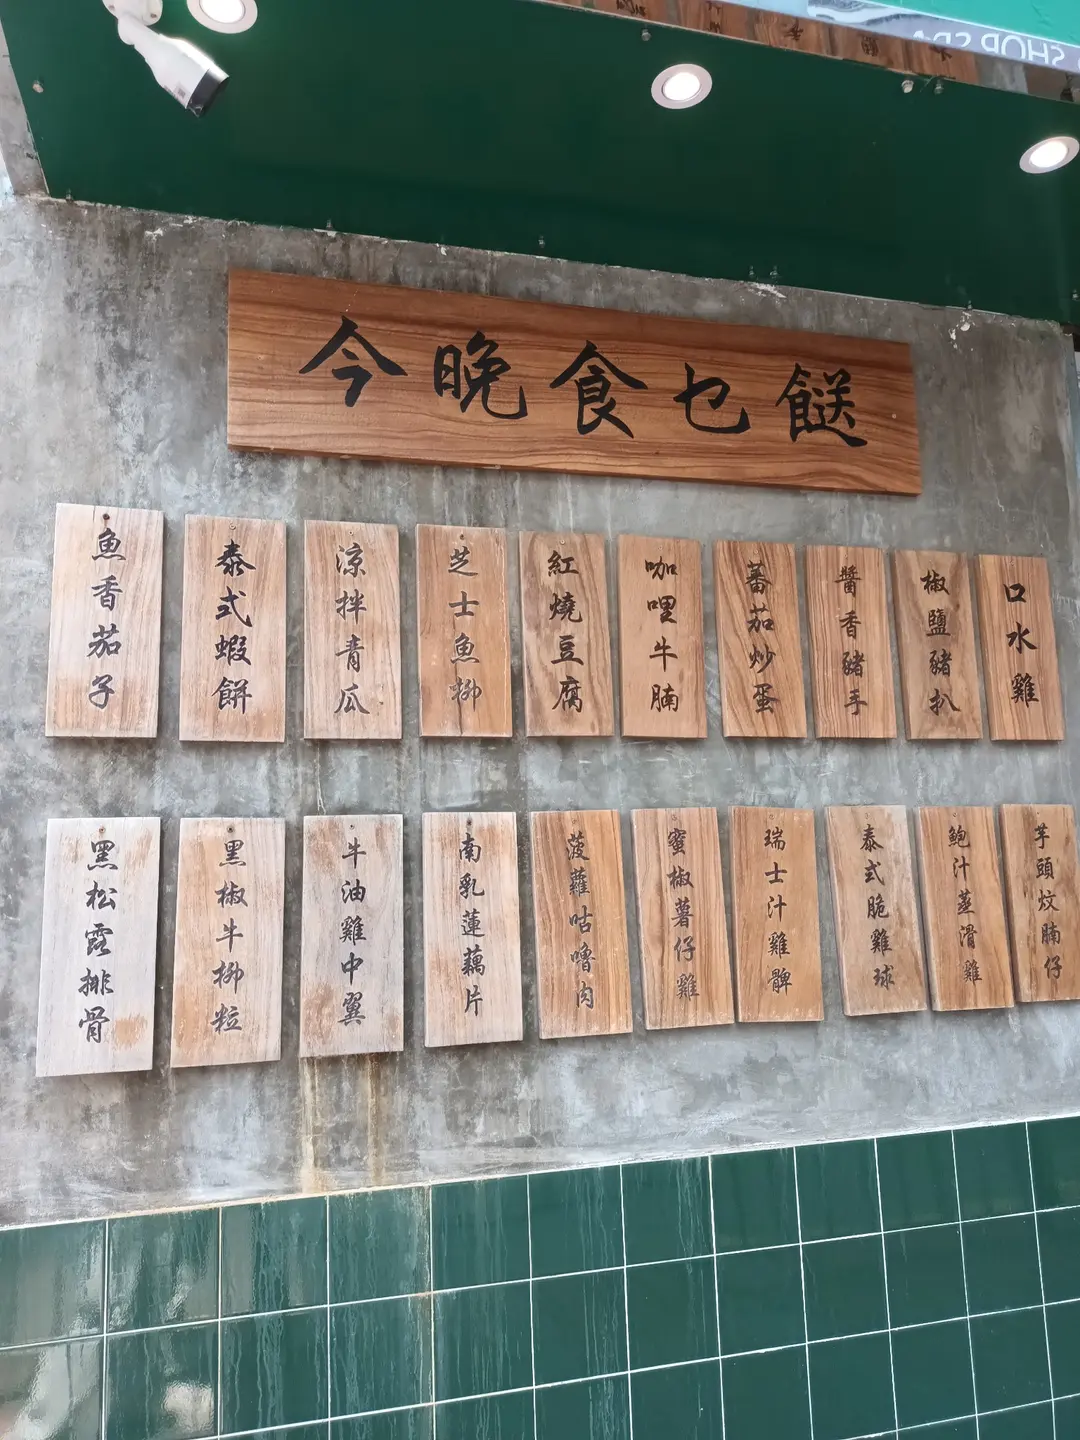 今晚食乜餸
魚香茄子
泰式蝦餅
涼拌青瓜
芝士魚柳
紅燒豆腐
咖哩牛腩
蕃茄炒蛋
醬香豬手
椒鹽豬扒
口水雞
黑松露排骨
黑椒牛柳粒
牛油雞中翼
南乳蓮藕片
菠蘿咕嚕肉
蜜椒薯仔雞
瑞士汁雞髀
泰式脆雞球
鮑汁蒸滑雞
芋頭炆腩仔
SHOP